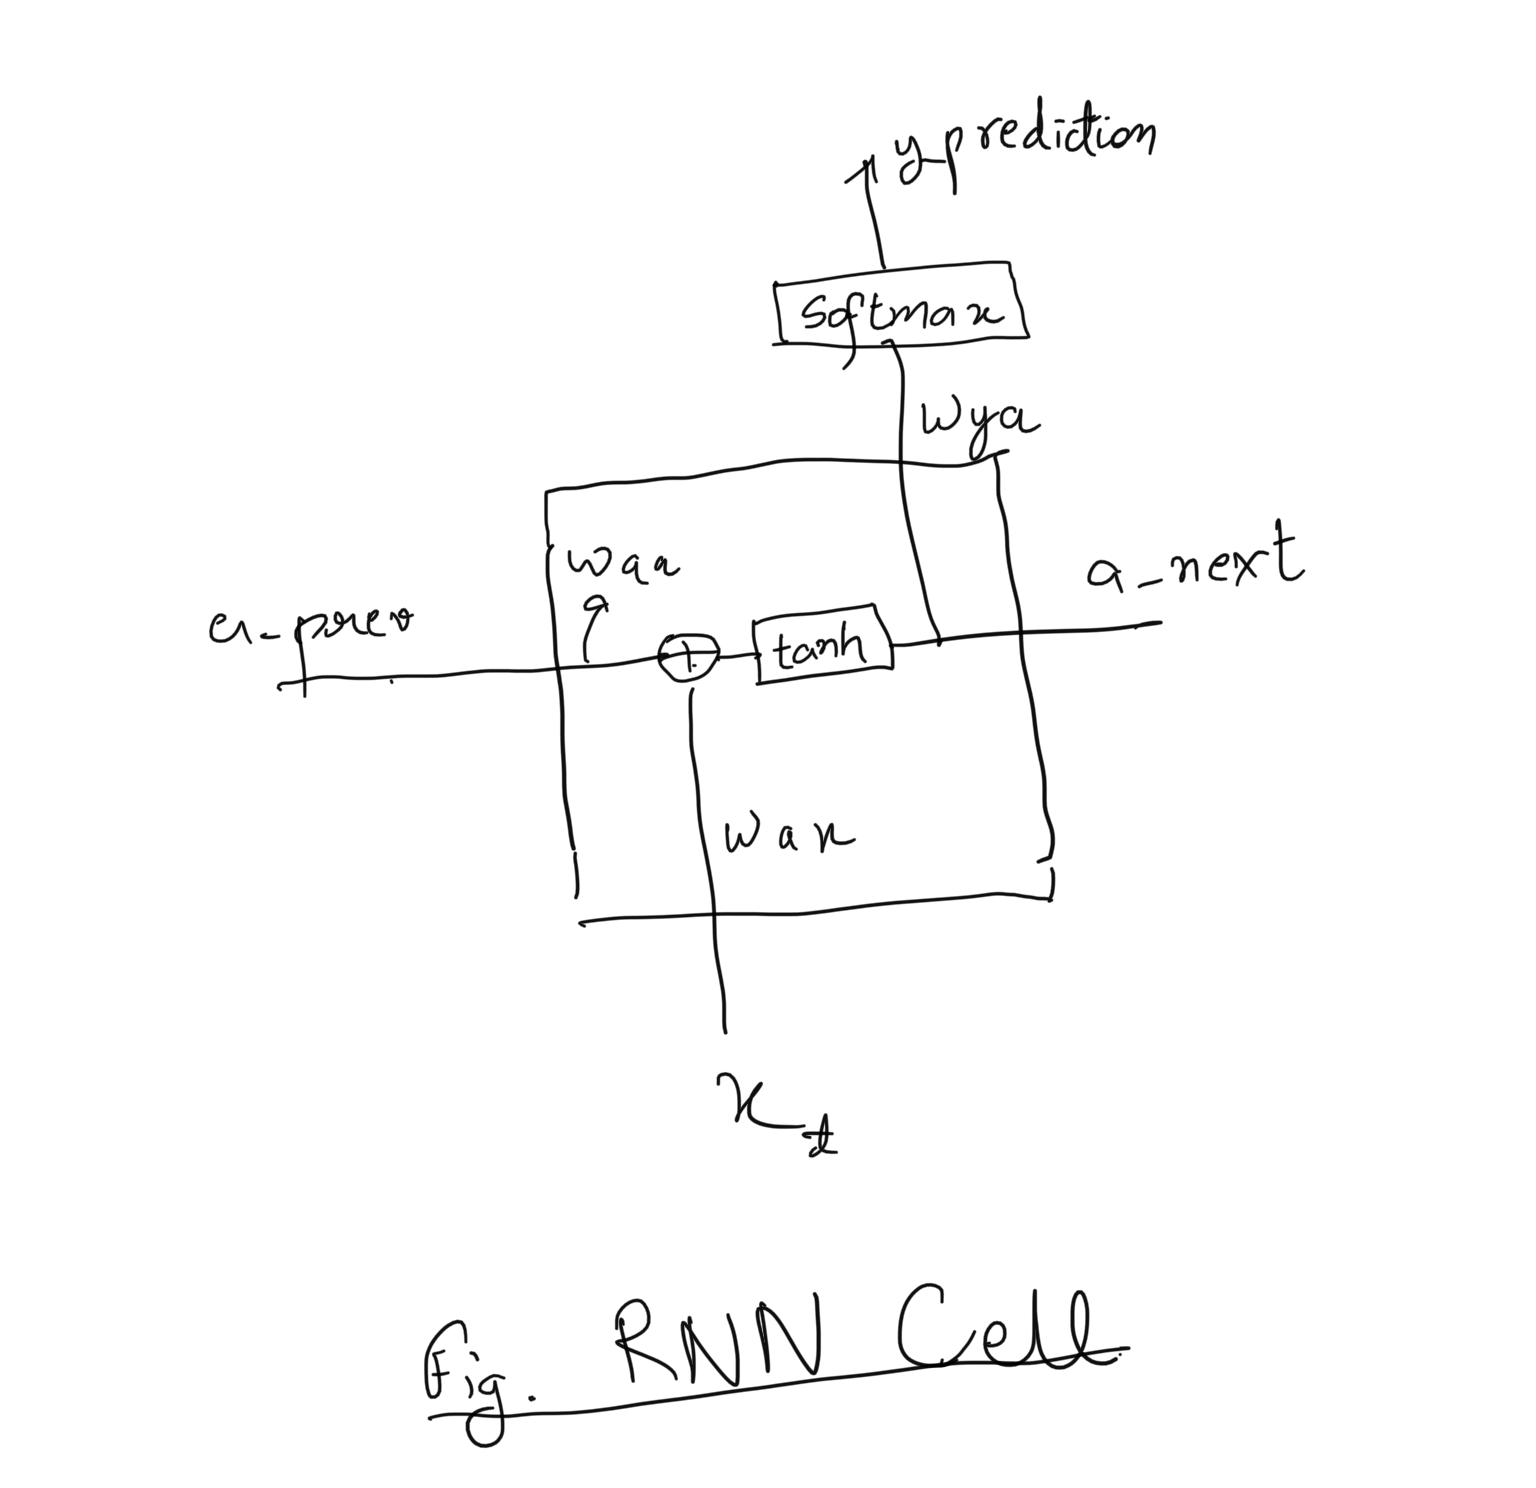 y prediction
Softmax
Wya
Waa
a_next
a_prev
+
tanh
Wax
x_t
Fig. RNN Cell